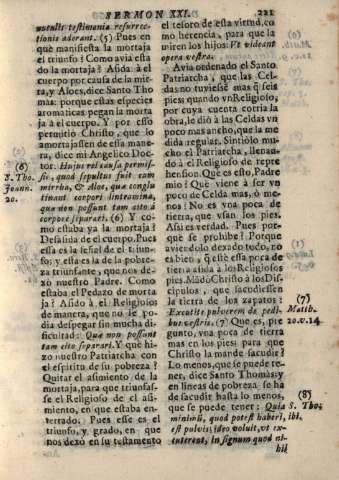 SERMON XXI.
221
notulis testimonia resurrec-
tionis aderant. (5) Pues en
què manifiesta la mortaja
el triunfo? Como avia esta
do la mortaja? Asida à el
cuerpo por causa de la mir-
ra, y Aloes, dice Santo Tho
mas: porque estas especies
aromaticas pegan la morta
ja à el cuerpo. Y por esso
permitiò Christo, que lo
amortajassen de essa mane-
ra, dice mi Angelico Doc-
tor. Hujus rei causa permis-
sit, quod sepultus fuit cum
mirrha, & Aloe, quæ conglu
tinant corpori linteamina,
qua non possunt tam cito à
corpore separari. (6) Y co-
mo estaba ya la mortaja?
Desasida de el cuerpo. Pues
essa es la señal de el triun-
fo: y esta es la de la pobre-
za triunfante, que nos de-
xò nuestro Padre. Como
estaba el Pedazo de morta
ja? Asido à el Religioso
de manera, que no se po-
dia despegar sin mucha di-
ficultad: Quæ non possunt
tam cito separari. Y què hi-
zo nuestro Patriarcha con
el espiritu de su pobreza?
Quitar el asimiento de la
mortaja, para que triunfas-
se el Religioso de el asi-
miento, en que estaba en-
terrado. Pues esse es el
triunfo, y grado, en que
nos dexò en su testamento
(6)
S. Tho.
Joann.
20.
el tesoro de esta virtud, co
mo herencia, para que la
miren los hijos: Ut videant
opera vestra.
Avia ordenado el Santo
Patriarcha, que las Cel-
das no tuviesse mas q̃ seis
pies; quando vn Religioso,
por cuya cuenta corria la
obra, le diò à las Celdas vn
poco mas ancho, que la me
dida regular. Sintiòlo mu-
cho el Patriarcha, llenan-
do à el Religioso de repre
hension. Què es esto, Padre
mio? Què viene à ser vn
poco de Celda mas, ò me-
nos? No es vna poca de
tierra, que vsan los pies.
Asi es verdad. Pues por-
què se prohibe? Porque
aviendolo dexado todo, no
es bien, q̃ estè essa poca de
tierra asida à los Religiosos
pies. Mãdò Christo à los Dis-
cipulos, que sacudiessen
la tierra de los zapatos:
Excutite pulverem de pedi-
bus vestris. (7) Que es, pre
gunto, vna poca de tierra
mas en los pies; para que
Christo la mande sacudir?
Lo menos, que se puede te-
ner, dice Santo Thomàs; y
en lineas de pobreza se ha
de sacudir hasta lo menos,
que se puede tener: Quia
minimũ, quod potest haberi,
est pulvis; ideo voluit, vt ex-
cuterent, in signum quod ni-
hil
(7)
Matth.
10. v. 14
(8)
S. Tho.
ibi.